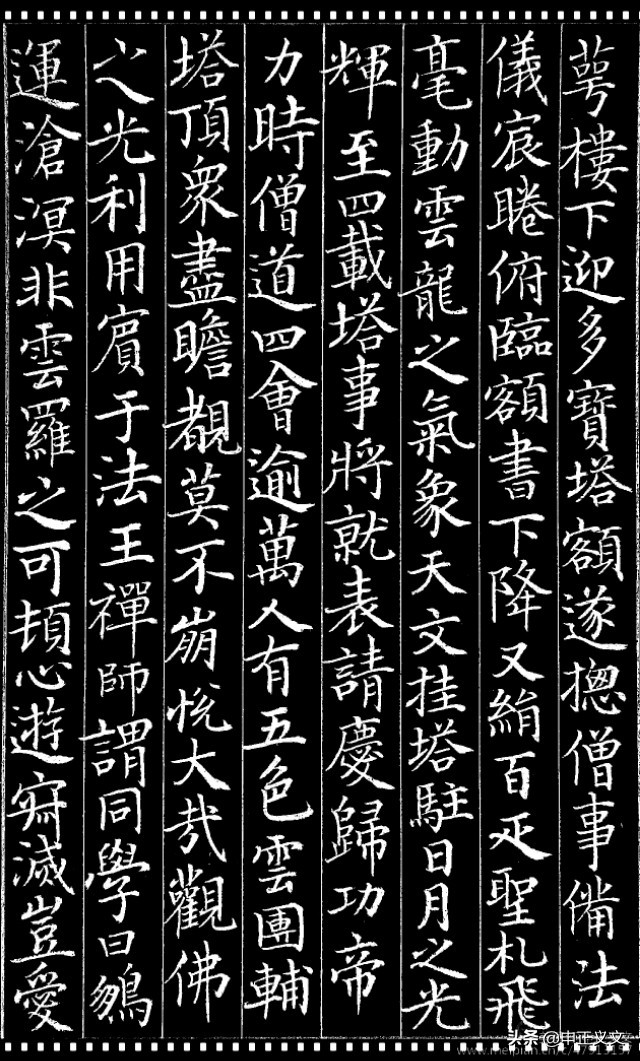 萼樓下迎多寶塔額遂揔僧事備法
儀宸睠俯臨額書下降又絹百疋聖札飛
毫動雲龍之氣象天文挂塔駐日月之光
輝至四載塔事將就表請慶歸功帝
力時僧道四會逾萬人有五色雲團輔
塔頂衆盡瞻覩莫不崩悅大哉觀佛
之光利用賓于法王禪師謂同學曰鵬
運滄溟非雲羅之可頓心遊寂滅豈愛
头条 @中正义文